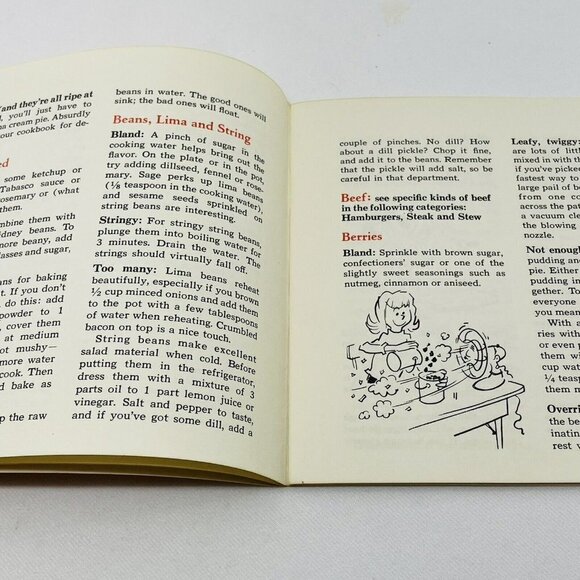 (and they're all ripe at
, you'll just have to
na cream pie. Absurdly
our cookbook for de-
ed
some ketchup or
Tabasco sauce or
rosemary or (what
them.
mbine them with
idney beans. To
more beany, add
lasses and sugar,
eans for baking
t. If you don't
, do this: add
powder to 1
, cover them
at medium
ot mushy—
more water
cook. Then
d bake as
p the raw
beans in water. The good ones will
sink; the bad ones will float.
Beans, Lima and String
Bland: A pinch of sugar in the
cooking water helps bring out the
flavor. On the plate or in the pot
try adding dillseed, fennel or rose-
mary. Sage perks up lima beans
(⅛ teaspoon in the cooking water),
and sesame seeds sprinkled on
string beans are interesting.
Stringy: For stringy string beans,
plunge them into boiling water for
3 minutes. Drain the water. The
strings should virtually fall off.
Too many: Lima beans reheat
beautifully, especially if you brown
½ cup minced onions and add them
to the pot with a few tablespoons
of water when reheating. Crumbled
bacon on top is a nice touch.
String beans make excellent
salad material when cold. Before
putting them in the refrigerator,
dress them with a mixture of 3
parts oil to 1 part lemon juice or
vinegar. Salt and pepper to taste,
and if you've got some dill, add a
couple of pinches. No dill? How
about a dill pickle? Chop it fine,
and add it to the beans. Remember
that the pickle will add salt, so
be careful in that department.
Beef: see specific kinds of beef
in the following categories:
Hamburgers, Steak and Stew
Berries
Bland: Sprinkle with brown sugar,
confectioners' sugar or one of the
slightly sweet seasonings such as
nutmeg, cinnamon or aniseed.
Leafy, twiggy:
are lots of little
mixed in with th
if you've picked
fastest way to
large pail of b
from one co
across the pat
a vacuum cle
the blowing
nozzle.
Not enough
pudding an
pie. Either
pudding in
gether. To
everyone
you mean
With a
ries with
cup wate
¼ teasp
them m
Overri
the be
inatin
rest v